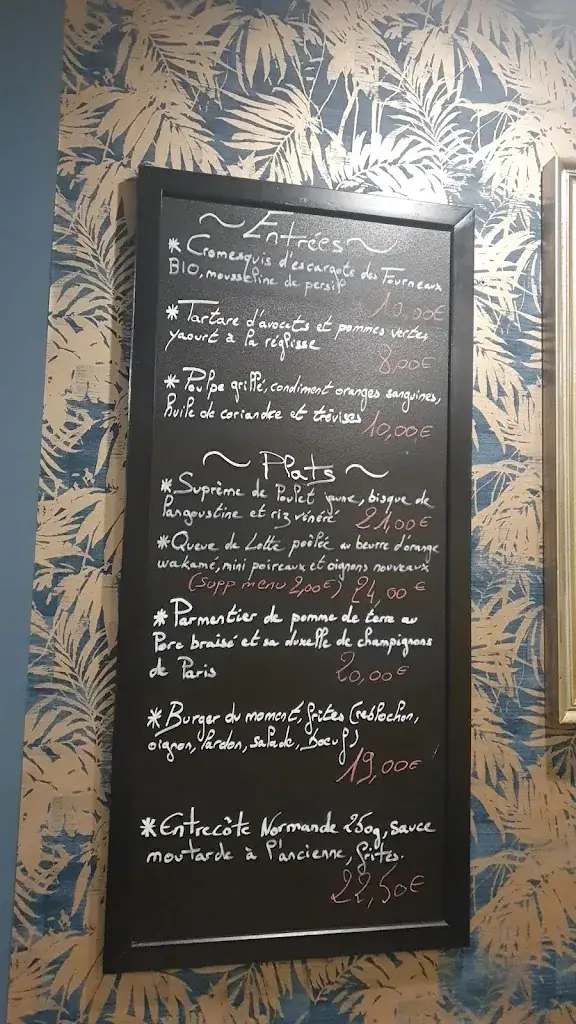 ~ Entrées ~
* Cromesquis d'escargots des Fourneaux
BIO, mousseline de persil
10,00€
* Tartare d'avocats et pommes vertes
yaourt à la réglisse
8,00€
* Poulpe grillé, condiment oranges sanguines,
huile de coriandre et trévises
10,00€
~ Plats ~
* Suprême de Poulet jaune, bisque de
langoustine et riz vénéré 21,00€
* Queue de Lotte poêlée au beurre d'orange
wakamé, mini poireaux et oignons nouveaux
(supp menu 2,00€) 24,00€
* Parmentier de pomme de terre au
Porc braisé et sa duxelle de champignons
de Paris 20,00€
* Burger du moment, frites (reblochon,
oignon, lardon, salade, boeuf)
19,00€
* Entrecôte Normande 250g, sauce
moutarde à l'ancienne, frites.
22,50€